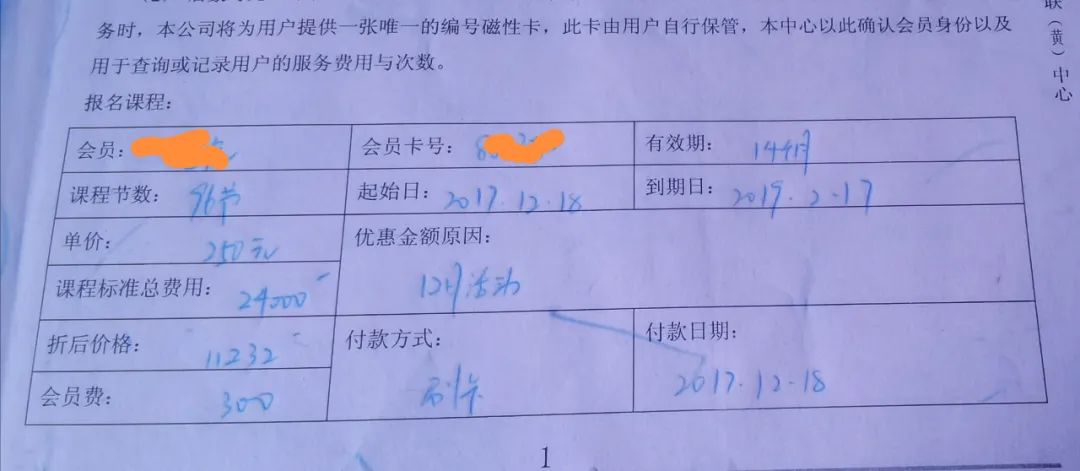 务时，本公司将为用户提供一张唯一的编号磁性卡，此卡由用户自行保管，本中心以此确认会员身份以及
用于查询或记录用户的服务费用与次数。
报名课程：
会员： 会员卡号： 有效期： 14个月
课程节数： 96节 起始日： 2017.12.18 到期日： 2019.2.17
单价： 250元 优惠金额原因：
课程标准总费用： 24000 12月活动
折后价格： 11232 付款方式： 付款日期：
会员费： 300 刷卡 2017.12.18
1
联（黄）中心